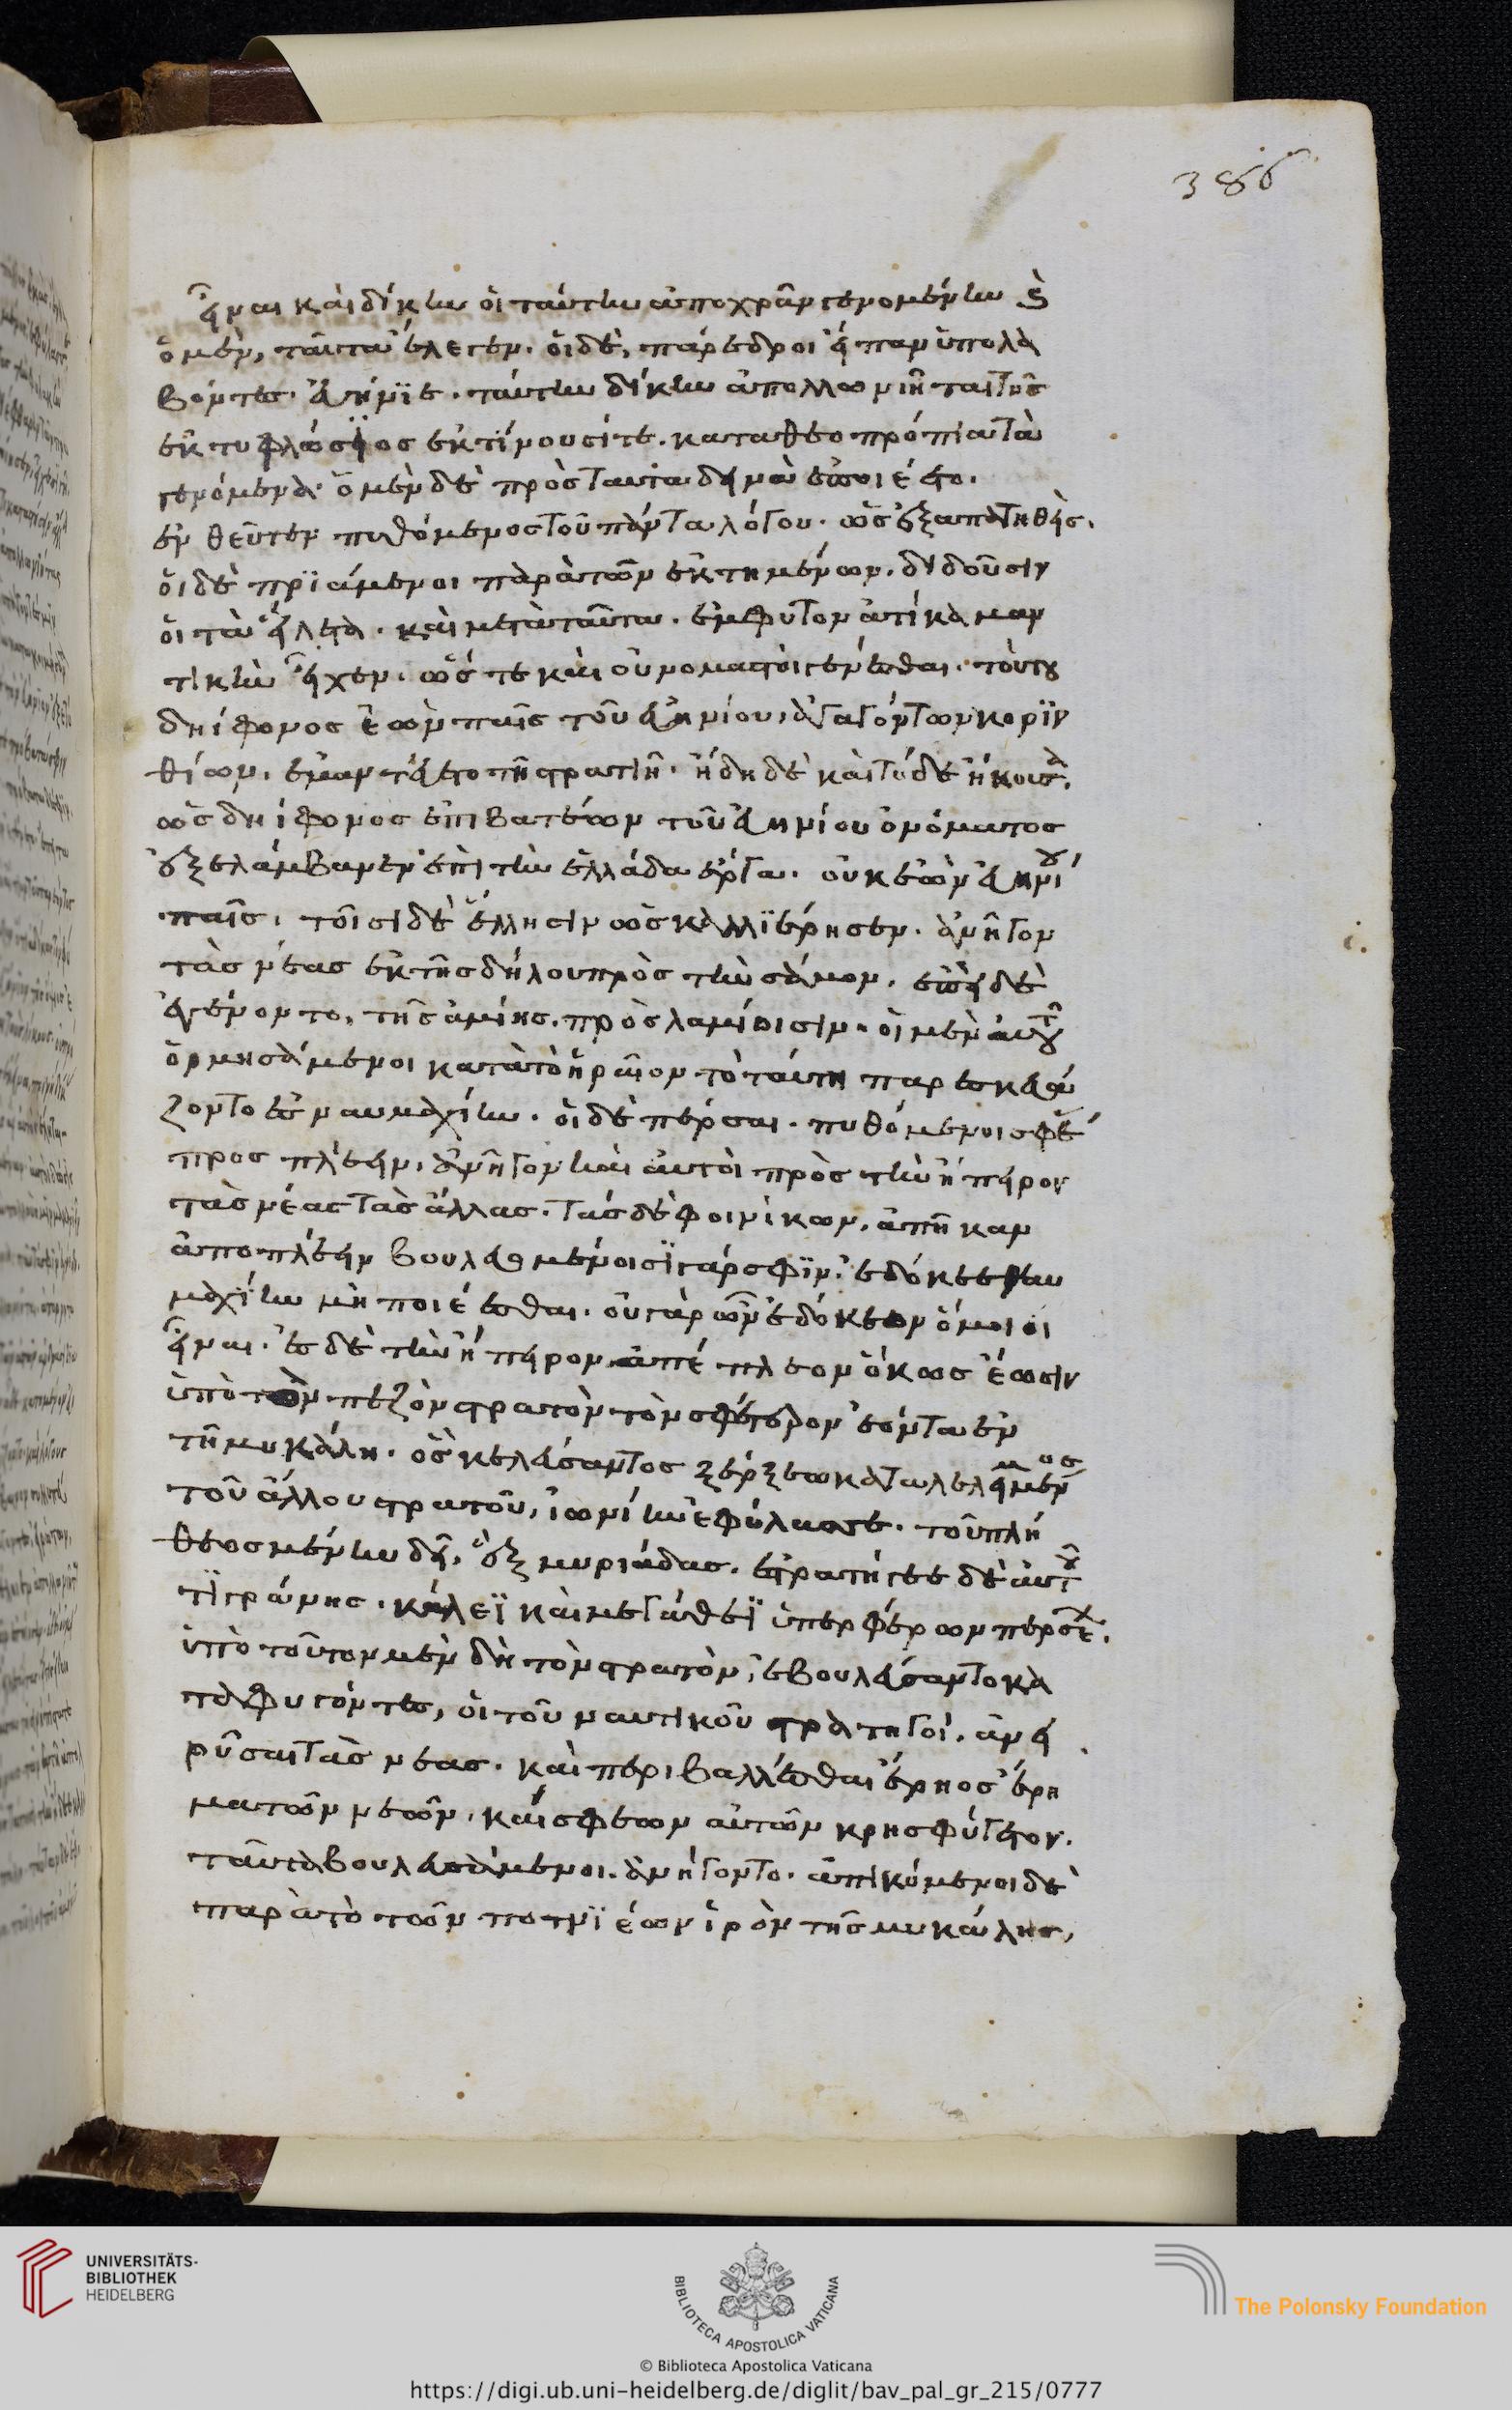 386
εἶναι καὶ δίκην οἱ ταύτην ἀποχρᾶν γενομένην καὶ
ὁ μὲν, ταῦτα ἔλεγεν. οἱ δὲ, πάρεδροι εἶπαν ὑπολα
βόντες. εὐήνϊε. ταύτην δίκην ἀπολλωνιῆται τῆς
ἐκτυφλώσϊος ἐκτίνουσί τε. κατὰ θεοπρόπια τὰ
γενόμενα. ὁ μὲν δὲ πρὸς ταῦτα δεινὰ ἐποιέετο.
ἐνθεῦτεν πυθόμενος τοῦ πάντα λόγου. ὡς ἐξαπατηθεὶς.
οἱ δὲ πρϊάμενοι παρὰ τῶν ἐκτημένων. δίδουσιν
οἱ τὰ εἵλετο. καὶ μετὰ ταῦτα. ἔμφυτον αὐτίκα μαν
τικὴν εἶχεν. ὥστε καὶ οὐνομαστοὶ γενέσθαι. τούτου
δηίφονος ἐὼν παῖς τοῦ εὐηνίου, ἀγαγόντων κορϊν
θίων. ἐμαντεύετο τῇ στρατιῇ. ἤδη δὲ καὶ τόδε ἤκουσα.
ὡς δηίφονος ἐπιβατέων τοῦ εὐηνίου ὀνόματος
ἐξελάμβανεν ἐπὶ τὴν ἑλλάδα ἔργα. οὐκ ἐὼν εὐηνίου
παῖς. τοῖσι δὲ ἕλλησιν ὡς καλλϊέρησεν. ἀνῆγον
τὰς νέας ἐκ τῆς δήλου πρὸς τὴν σάμον. ἐπεὶ δὲ
ἐγένοντο. τῆς αμίης. πρὸς λαμίοισιν. οἱ μὲν αὐτοῦ
ὁρμησάμενοι κατὰ τὸ ἥραιον τὸ ταύτη παρεσκευά
ζοντο ἐς ναυμαχίην. οἱ δὲ πέρσαι. πυθόμενοι σφέας
προσπλέειν. ἀνῆγον καὶ αὐτοὶ πρὸς τὴν ἤπειρον
τὰς νέας τὰς ἄλλας. τὰς δὲ φοινίκων. ἀπῆκαν
ἀποπλέειν βουλευομένοισϊ γάρ σφϊν. ἐδόκεε ναυ
μαχίην μὴ ποιέεσθαι. οὐ γὰρ ὦν ἐδόκεον ὅμοιοι
εἶναι. ἐς δὲ τὴν ἤπειρον ἀπέπλεον ὅκως ἔωσιν
ὑπὸ τὸν πεζὸν στρατὸν τὸν σφέτερον ἐόντα ἐν
τῇ μυκάλη. ὃς κελεύσαντος ξέρξεω καταλελειμμένος
τοῦ ἄλλου στρατοῦ, ἰωνίην ἐφύλασσε. τοῦ πλή
θεος μὲν ἦν δὴ, ἓξ μυριάδας. ἐστρατήγεε δὲ αὐτοῦ
τϊγράνης. κάλεϊ καὶ μεγάθεϊ ὑπερφέρων περσέων.
ὑπὸ τοῦτον μὲν δὴ τὸν στρατὸν, ἐβουλεύσαντο κα
ταφυγόντες, οἱ τοῦ ναυτικοῦ στρατηγοί. ἀνει
ρῦσαι τὰς νέας. καὶ περιβαλλέεσθαι ἕρκος ἔρυ
μα τῶν νεῶν. καὶ σφέων αὐτῶν κρησφύγετον.
ταῦτα βουλευσάμενοι. ἀνήγοντο. ἀπικόμενοι δὲ
παρὰ τὸ τῶν ποτνϊέων ἱρὸν τῆς μυκάλης,
UNIVERSITÄTS-
BIBLIOTHEK
HEIDELBERG
BIBLIOTECA APOSTOLICA VATICANA
The Polonsky Foundation
© Biblioteca Apostolica Vaticana
https://digi.ub.uni-heidelberg.de/diglit/bav_pal_gr_215/0777